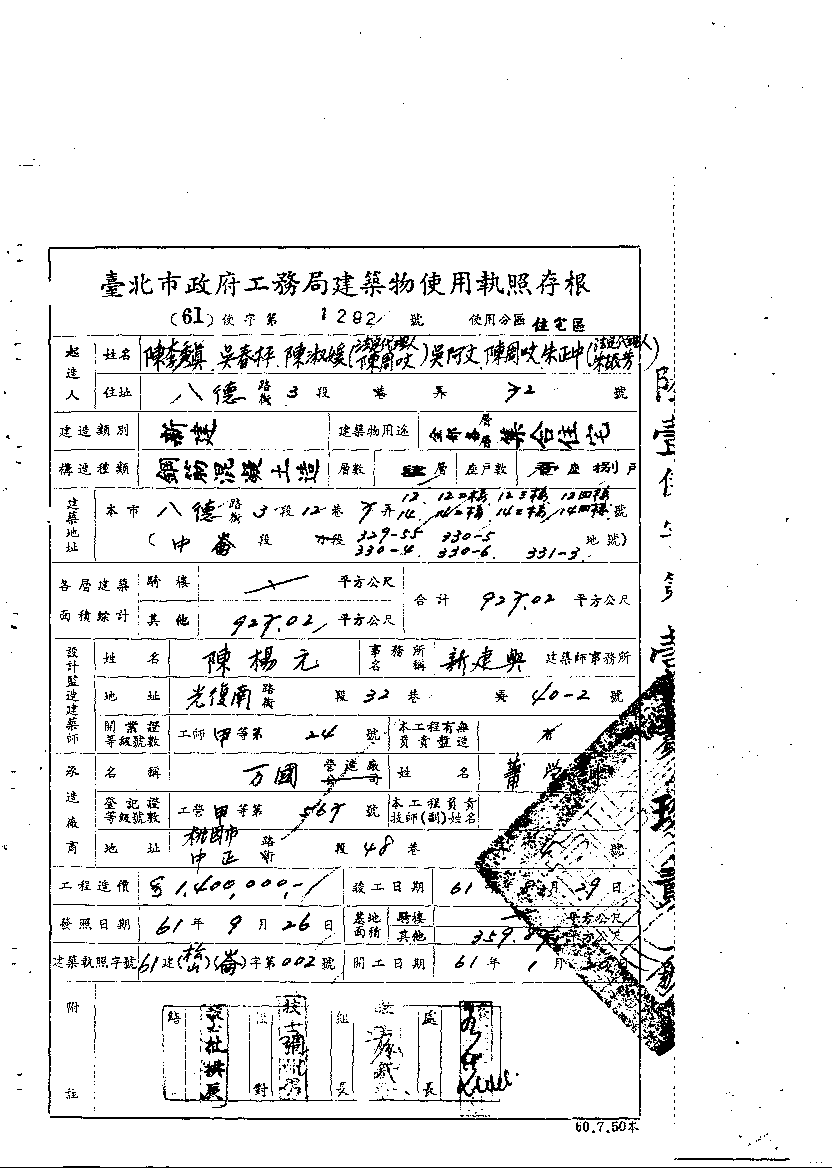 臺北市政府工務局建築物使用執照存根
(61) 使字第 1282 號 使用分區 住宅區
起造人 姓名 吳春枰 陳淑媛(法定代理人 陳周吱) 吳阿文 陳周吱 朱正中(法定代理人 朱振芳)
住址 八德 路街 3 段 巷 弄 號
建造類別 新建 建築物用途 集合住宅
構造種類 鋼筋混凝土造 層數 層 座戶數 座 捌 戶
建築地址 本市 八德 路街 3 段 12 巷 弄 12 12二樓 12三樓 12四樓 號
14 14二樓 14三樓 14四樓
( 中崙 段 小段 329-55 330-5 地號)
330-4 330-6 331-3
各層建築面積綜計 騎樓 平方公尺 合計 927.02 平方公尺
其他 927.02 平方公尺
設計監造建築師 姓名 陳楊元 事務所名稱 新建興 建築師事務所
地址 光復南 路街 段 32 巷 弄 40-2 號
開業證等級號數 工師 甲 等第 24 號 本工程有無負責監造 有
承造廠商 名稱 万國 營造廠公司 姓名 蕭
登記證等級號數 工營 甲 等第 567 號 本工程負責技師(副)姓名
地址 桃園市中正 路街 段 48 巷 號
工程造價 1,400,000.- 竣工日期 61 年 8 月 29 日
發照日期 61 年 9 月 26 日 基地面積 騎樓 平方公尺
其他 平方公尺
建築執照字號 61 建(松)(崙)字第 002 號 開工日期 61 年 1 月 日
附註 校對 組長 處長
60.7.50本